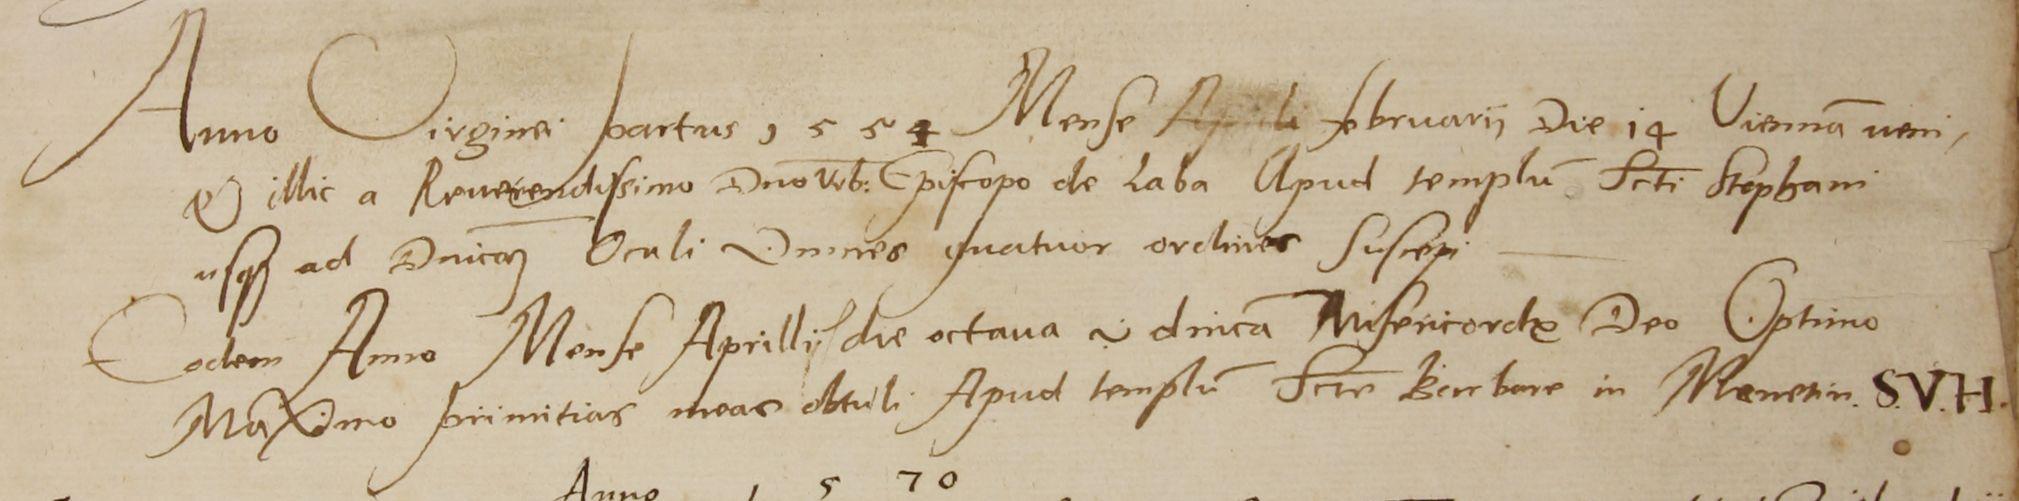 Anno Virginei partus 1554 Mense februarij Die 14 Viennā ueni,
& illic a Reuerendissimo Dno Vrb: Episcopo de Laba Apud templū Scti Stephani
usq ad Dnicā Oculi Omnes quatuor ordines suscepi
Eodem Anno Mense Aprilli die octaua dnicā Misericordiæ Deo Optimo
Maximo primitias meas obtuli Apud templū Scte Barbare in Manetin. S.V.H.
Anno 1570